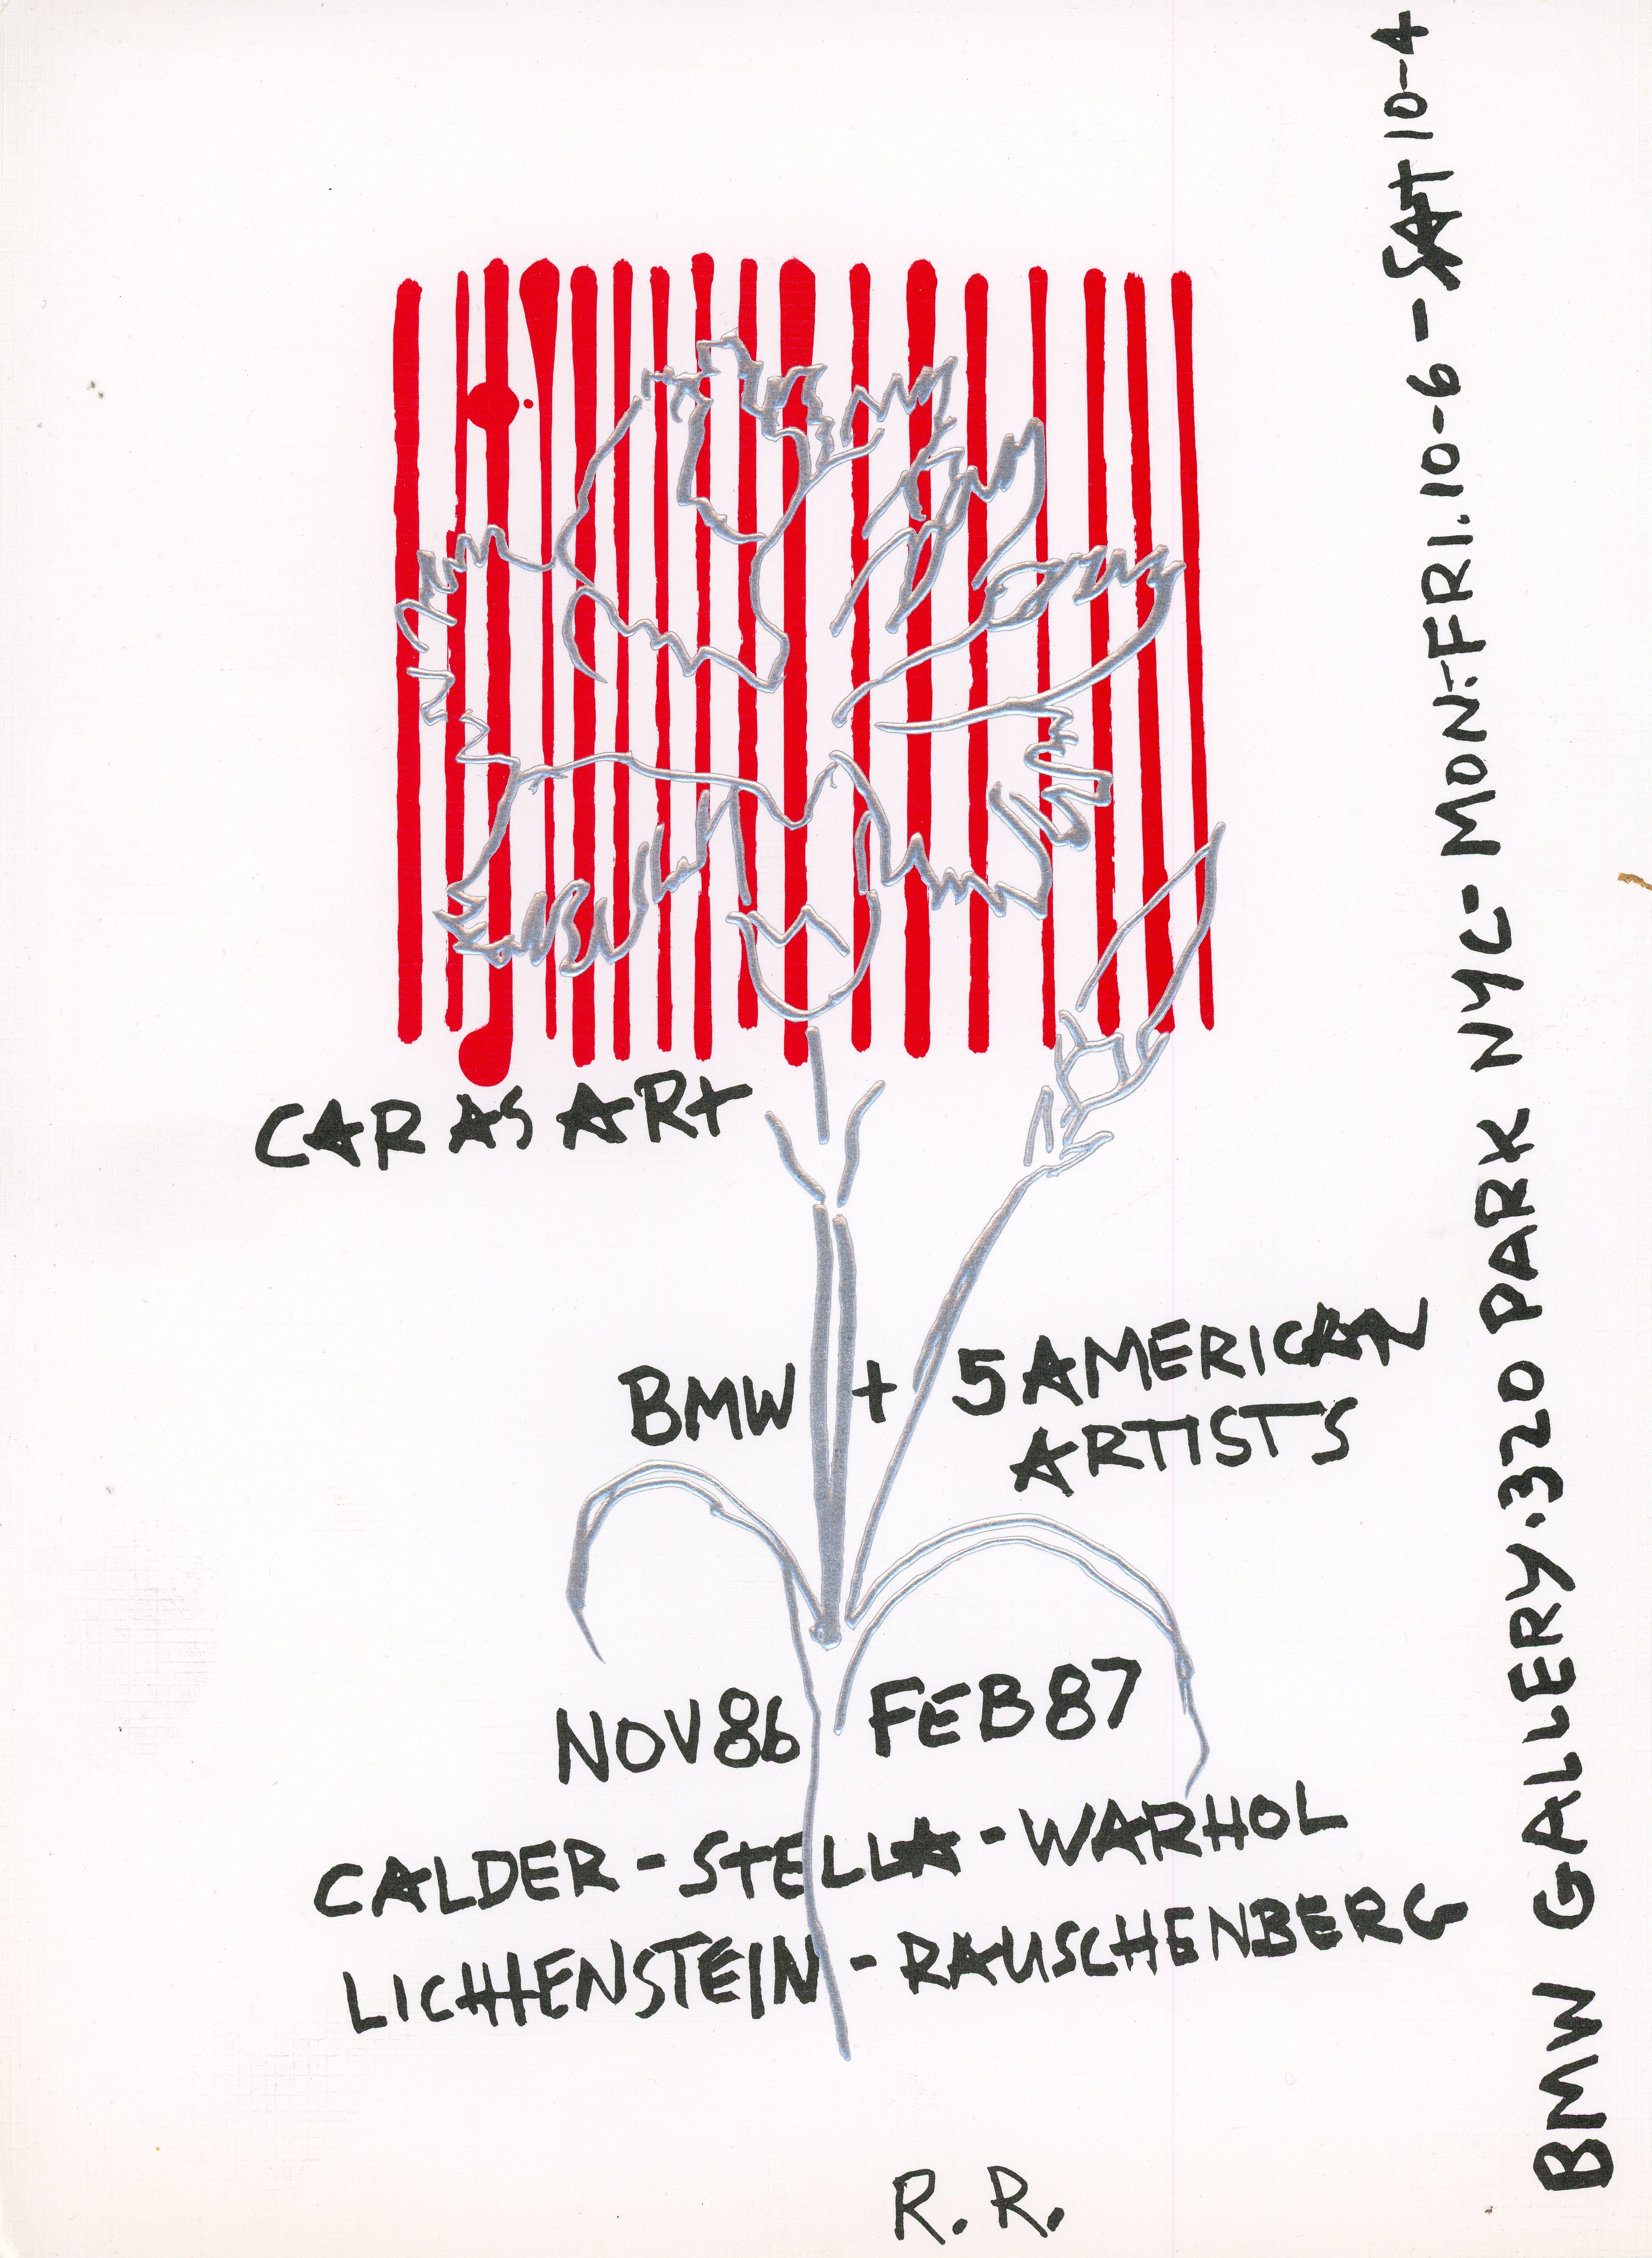 CAR AS ART
BMW + 5 AMERICAN
ARTISTS
NOV 86 FEB 87
CALDER - STELLA - WARHOL
LICHTENSTEIN - RAUSCHENBERG
R.R.
BMW GALLERY. 320 PARK NYC - MON.-FRI. 10-6 - SAT 10-4